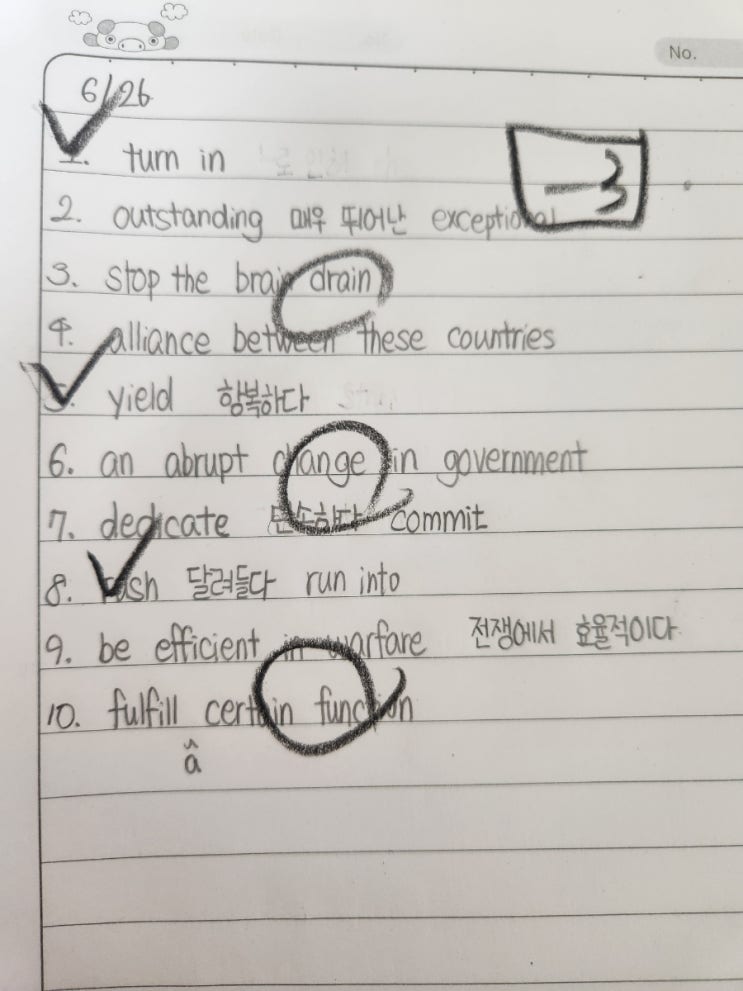 No.
6/26
1. turn in
-3
2. outstanding 매우 뛰어난 exceptional
3. stop the brain drain
4. alliance between these countries
5. yield 항복하다
6. an abrupt change in government
7. dedicate commit
8. 달려들다 run into
9. be efficient in warfare 전쟁에서 효율적이다
10. fulfill certain function
a